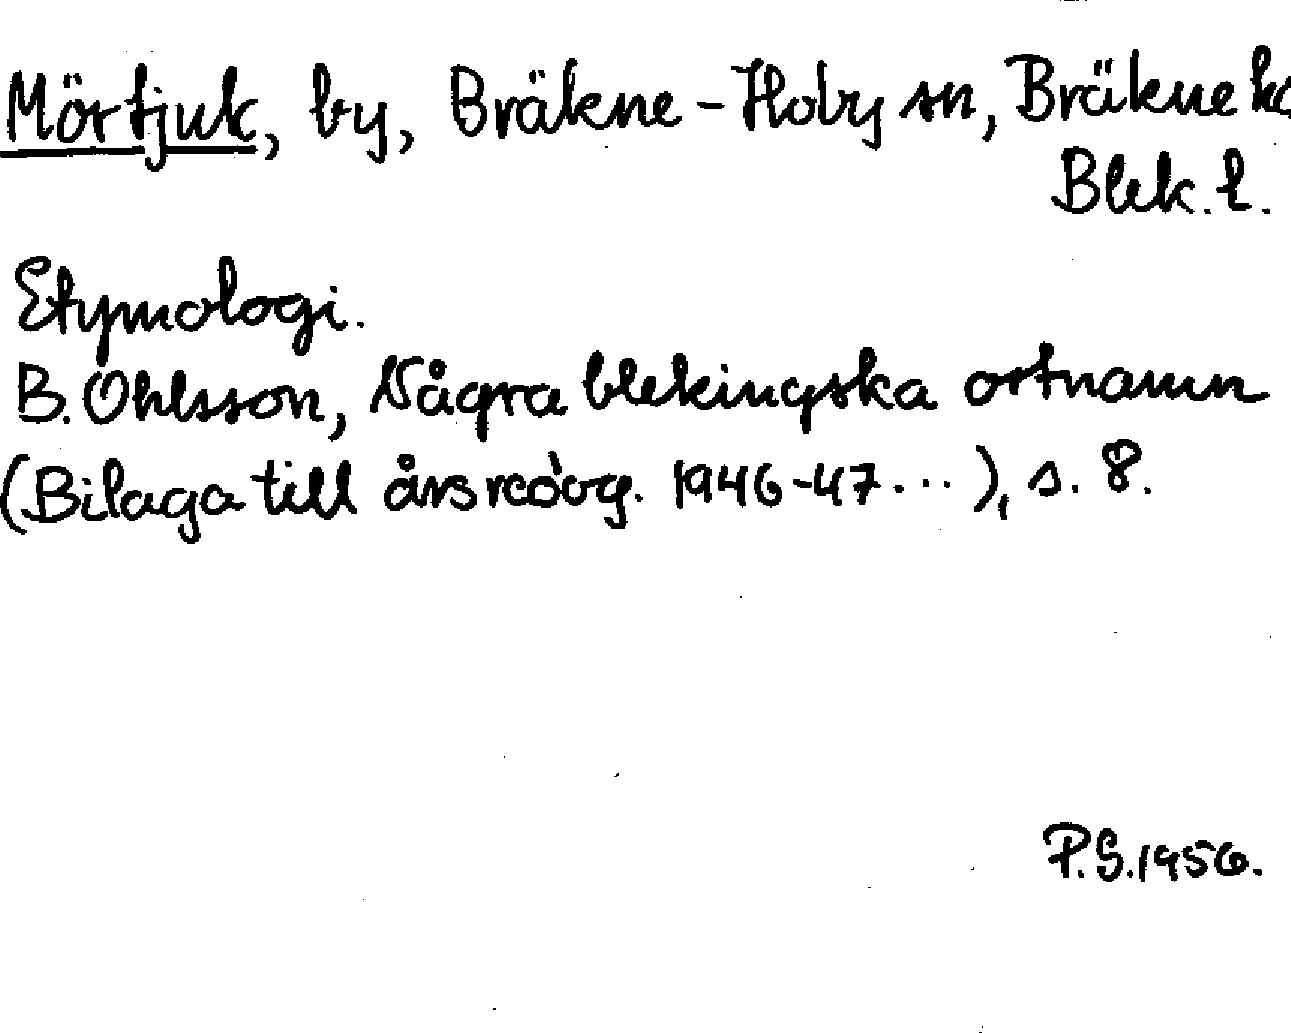 Mörtjuk, by, Bräkne-Hoby sn, Bräkne
Blek. l.
Etymologi.
B. Ohlsson, Några blekingska ortnamn
(Bilaga till årsredog. 1946-47...), s. 8.
P.S. 1956.